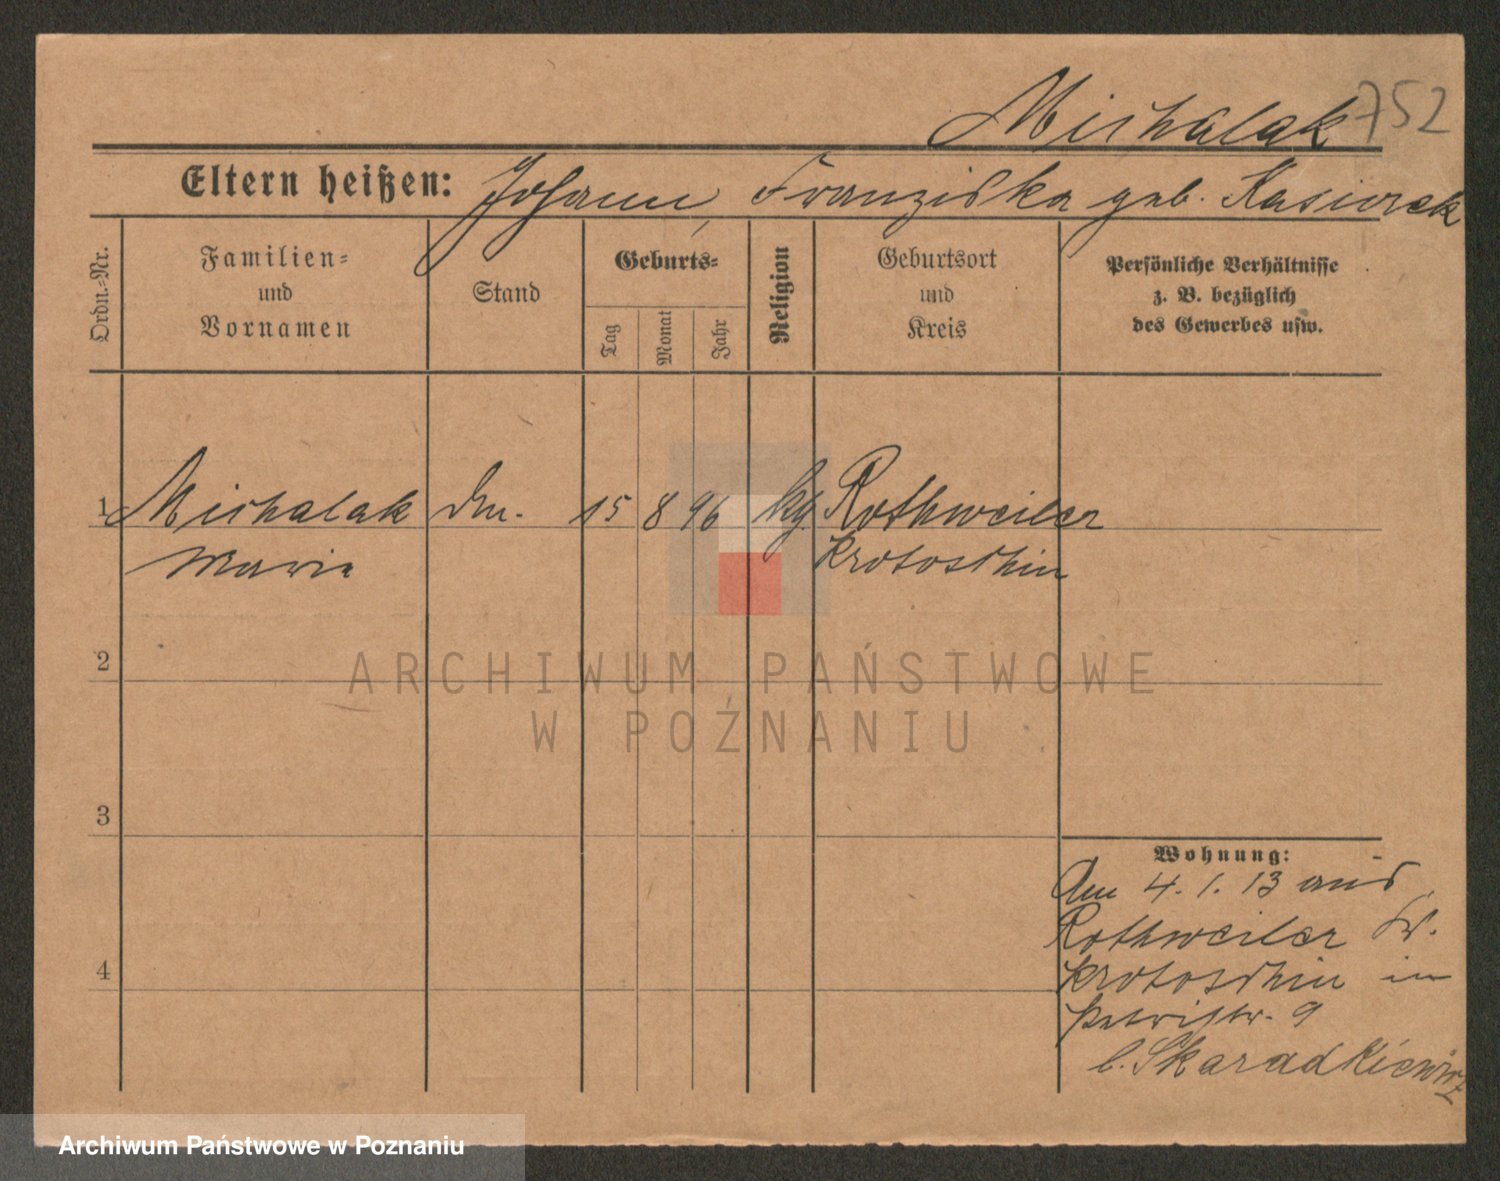 Michalak 752
Eltern heißen: Johann Franziska geb. Kasiorek
Ordn.-Nr.
Familien=
und
Vornamen
Stand
Geburts=
Tag
Monat
Jahr
Religion
Geburtsort
und
Kreis
Persönliche Verhältnisse
z. B. bezüglich
des Gewerbes usw.
1 Michalak 15 8 96 Rothweiler
Marie Krotoschin
2
3
4
Wohnung:
Am 4. 1. 13 aus
Rothweiler Kr.
Krotoschin in
Petristr. 9
b. Skaradkiewicz
ARCHIWUM PAŃSTWOWE
W POZNANIU
Archiwum Państwowe w Poznaniu